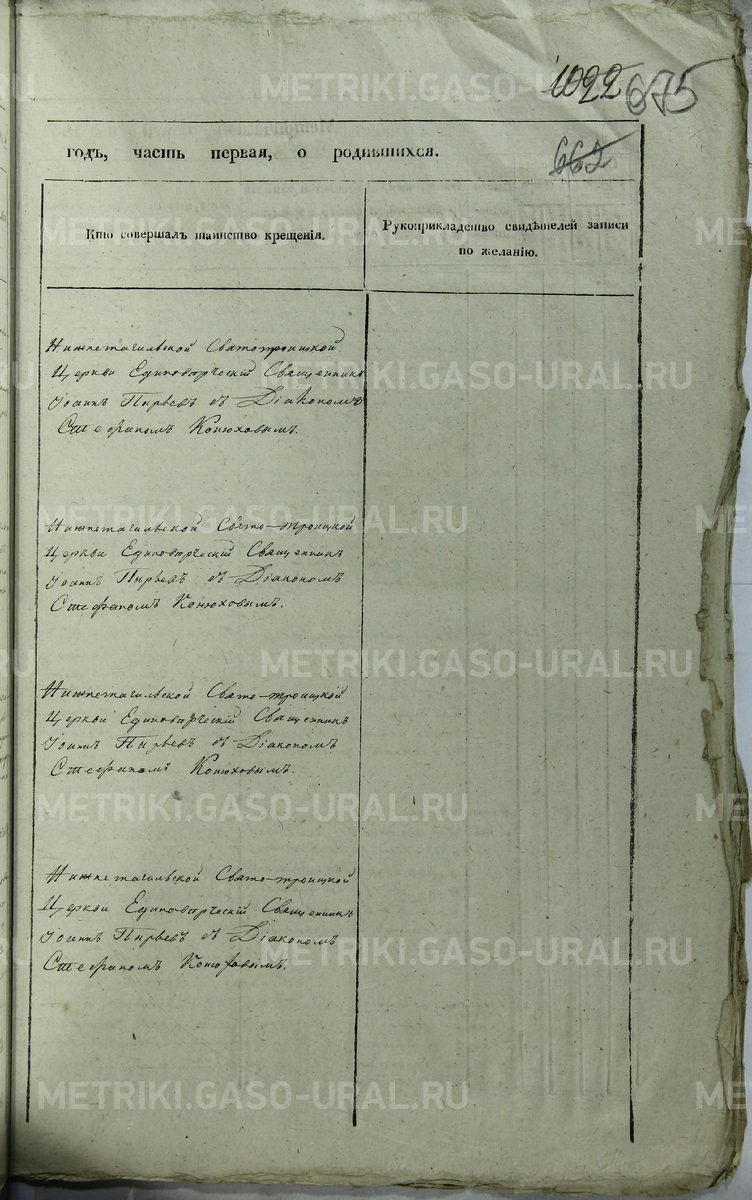 METRIKI.GASO-URAL.RU
1022 675
годъ, часть первая, о родившихся.
662
Кто совершалъ таинство крещенія.
Рукоприкладство свидѣтелей записи
по желанію.
Нижнетагильской Святотроицкой
Церкви Единовѣрческій Священникъ
Іоаннъ Пырьевъ съ Діакономъ
Стефаномъ Конюховымъ.
Нижнетагильской Свято-троицкой
Церкви Единовѣрческій Священникъ
Іоаннъ Пырьевъ съ Діакономъ
Стефаномъ Конюховымъ.
Нижнетагильской Свято-троицкой
Церкви Единовѣрческій Священникъ
Іоаннъ Пырьевъ съ Діакономъ
Стефаномъ Конюховымъ.
Нижнетагильской Свято-троицкой
Церкви Единовѣрческій Священникъ
Іоаннъ Пырьевъ съ Діакономъ
Стефаномъ Конюховымъ.